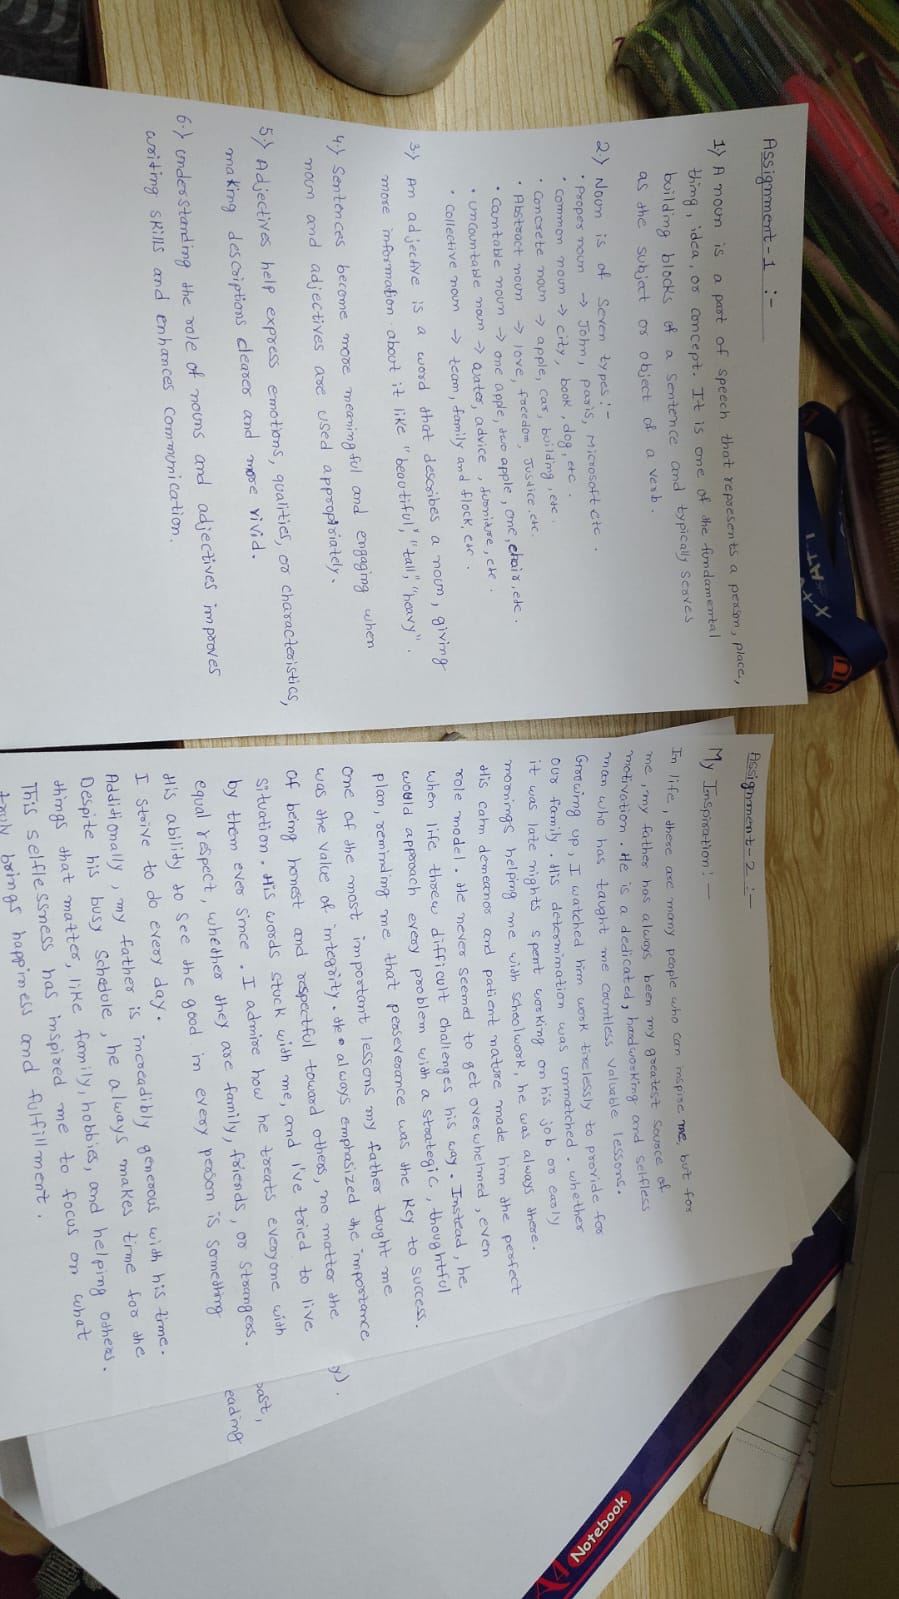 Assignment-1 :-
1) A noun is a part of speech that represents a person, place,
thing, idea, or concept. It is one of the fundamental
building blocks of a sentence and typically serves
as the subject or object of a verb.
2) Noun is of Seven types:-
• Proper noun → John, paris, Microsoft etc.
• Common noun → city, book, dog, etc.
• Concrete noun → apple, car, building, etc.
• Abstract noun → love, freedom, Justice, etc.
• Countable noun → one apple, two apple, one, chair, etc.
• Uncountable noun → water, advice, furniture, etc.
• Collective noun → team, family and flock, etc.
3) An adjective is a word that describes a noun, giving
more information about it like "beautiful," "tall," "heavy".
4) Sentences become more meaningful and engaging when
noun and adjectives are used appropriately.
5) Adjectives help express emotions, qualities, or characteristics,
making descriptions clearer and more vivid.
6.) Understanding the role of nouns and adjectives improves
writing skills and enhances communication.
Assignment-2 :-
My Inspiration! —
In life, there are many people who can inspire me, but for
me, my father has always been my greatest source of
motivation. He is a dedicated, hardworking and selfless
man who has taught me countless valuable lessons.
Growing up, I watched him work tirelessly to provide for
our family. His determination was unmatched. whether
it was late nights spent working on his job or early
mornings helping me with schoolwork, he was always there.
His calm demeanor and patient nature made him the perfect
role model. He never seemed to get overwhelmed, even
when life threw difficult challenges his way. Instead, he
would approach every problem with a strategic, thoughtful
plan, reminding me that perseverance was the key to success.
One of the most important lessons my father taught me
was the value of integrity. He always emphasized the importance
of being honest and respectful toward others, no matter the
situation. His words stuck with me, and I've tried to live
by them ever since. I admire how he treats everyone with
equal respect, whether they are family, friends, or strangers.
His ability to see the good in every person is something
I strive to do every day.
Additionally, my father is increadibly generous with his time.
Despite his busy schedule, he always makes time for the
things that matter, like family, hobbies, and helping others.
This selflessness has inspired me to focus on what
truly brings happiness and fulfillment.
y).
past,
eading
A4 Notebook